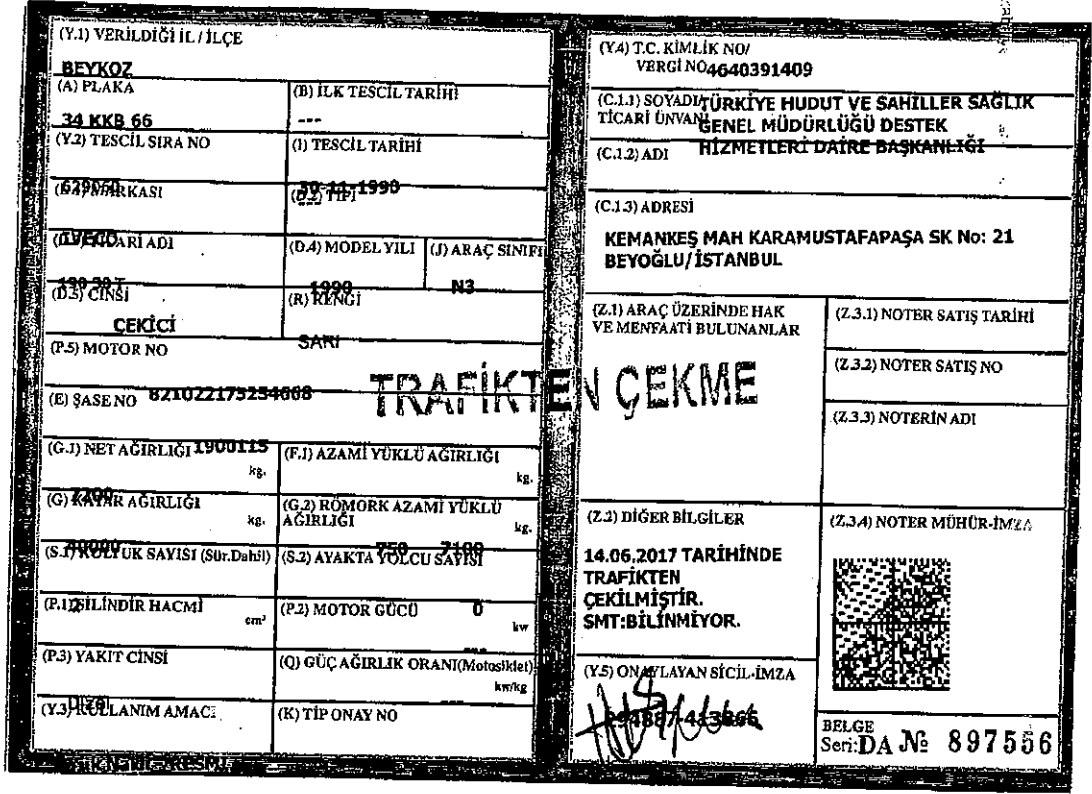 (Y.1) VERİLDİĞİ İL / İLÇE
BEYKOZ
(A) PLAKA
34 KKB 66
(B) İLK TESCİL TARİHİ
---
(Y.2) TESCİL SIRA NO
(I) TESCİL TARİHİ
30-11-1990
MARKASI
(D.2) TİPİ
---
IVECO
(D.4) MODEL YILI
1990
(J) ARAÇ SINIFI
N3
190 30 T
(D.5) CİNSİ
ÇEKİCİ
(R) RENGİ
SARI
(P.5) MOTOR NO
(E) ŞASE NO
TRAFİKTEN ÇEKME
(G.1) NET AĞIRLIĞI 1900115
kg.
(F.1) AZAMİ YÜKLÜ AĞIRLIĞI
kg.
(G) KATAR AĞIRLIĞI
kg.
(G.2) RÖMORK AZAMİ YÜKLÜ
AĞIRLIĞI
kg.
(S.1) KOLTUK SAYISI (Sür.Dahil)
(S.2) AYAKTA YOLCU SAYISI
(P.1) SİLİNDİR HACMİ
cm³
(P.2) MOTOR GÜCÜ
0
kw
(P.3) YAKIT CİNSİ
---
(Q) GÜÇ AĞIRLIK ORANI(Motosiklet)
kw/kg
Dizel
---
(Y.3) KULLANIM AMACI
(K) TİP ONAY NO
(Y.4) T.C. KİMLİK NO/
VERGİ NO 4640391409
(C.1.1) SOYADI/
TİCARİ ÜNVANI
TÜRKİYE HUDUT VE SAHİLLER SAĞLIK
GENEL MÜDÜRLÜĞÜ DESTEK
HİZMETLERİ DAİRE BAŞKANLIĞI
(C.1.2) ADI
(C.1.3) ADRESİ
KEMANKEŞ MAH KARAMUSTAFAPAŞA SK No: 21
BEYOĞLU/İSTANBUL
(Z.1) ARAÇ ÜZERİNDE HAK
VE MENFAATİ BULUNANLAR
(Z.3.1) NOTER SATIŞ TARİHİ
(Z.3.2) NOTER SATIŞ NO
(Z.3.3) NOTERİN ADI
(Z.2) DİĞER BİLGİLER
14.06.2017 TARİHİNDE
TRAFİKTEN
ÇEKİLMİŞTİR.
SMT:BİLİNMİYOR.
(Z.3.4) NOTER MÜHÜR-İMZA
(Y.5) ONAYLAYAN SİCİL-İMZA
BELGE
Seri:DA № 897556